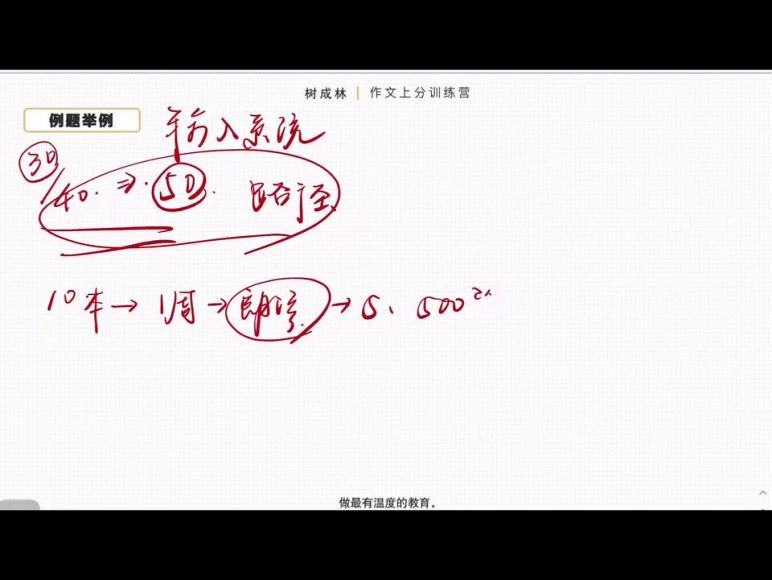 树成林 | 作文上分训练营
例题举例
输入系统
30/40. ⇒ 50. 路径
10本→1周→朗读→5、500
做最有温度的教育。